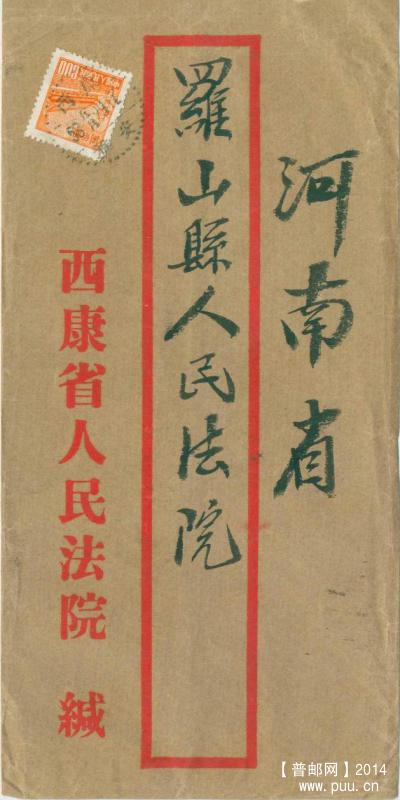 河南省
羅山縣人民法院
西康省人民法院 緘
800
【普邮网】2014
www.puu.cn